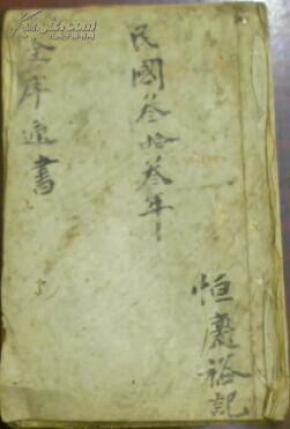 恒慶裕記
民國叁拾叁年
全庫通書